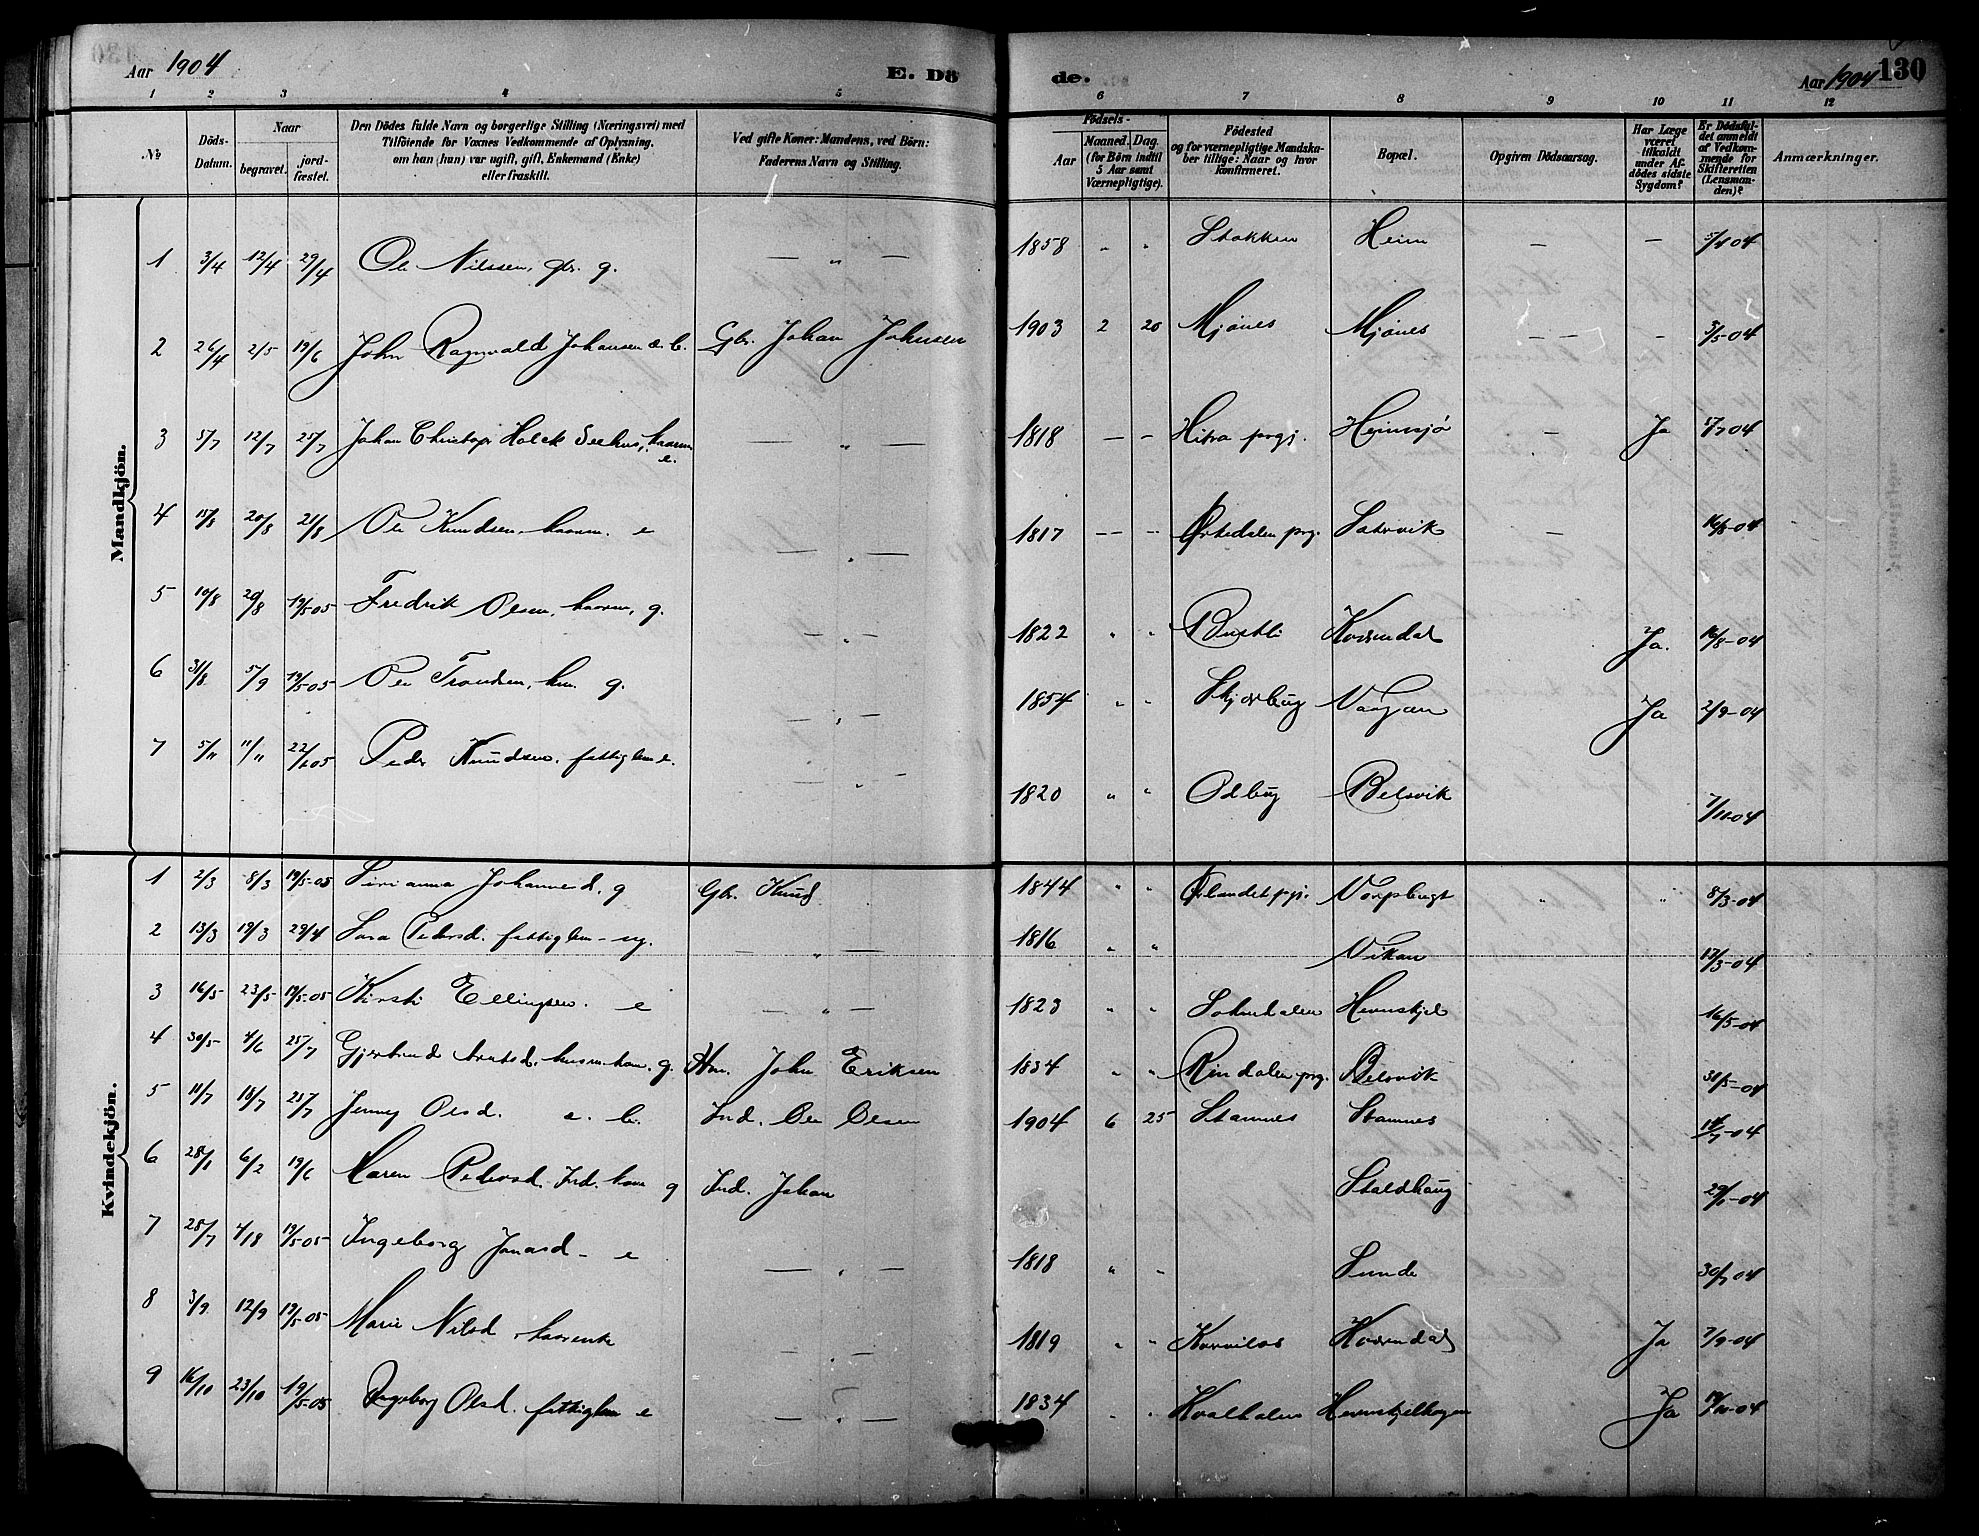 Aar 1904
E. Dö
de.
Aar 1904
130
1 2 3 4 5 6 7 8 9 10 11 12
No
Döds-Datum.
Naar
begravet.
jord-fæstet.
Den Dödes fulde Navn og borgerlige Stilling (Næringsvei) med
Tilföiende for Voxnes Vedkommende af Oplysning,
om han (hun) var ugift, gift, Enkemand (Enke)
eller fraskilt.
Ved gifte Koner: Mandens, ved Börn:
Faderens Navn og Stilling.
Födsels-
Aar
Maaned. Dag.
(for Börn indtil
5 Aar samt
Værnepligtige).
Födested
og for værnepligtige Mandska-
ber tillige: Naar og hvor
konfirmeret.
Bopæl.
Opgiven Dödsaarsag.
Har Læge
været
tilkaldt
under Af-
dödes sidste
Sygdom?
Er Dödsfal-
det anmeldt
af Vedkom-
mende for
Skifteretten
(Lensman-
den)?
Anmærkninger.
Mandkjön.
1 3/4 12/4 29/4 Ole Nilssen, gbr. g. — " — 1858 " " Stokken Heim — — 5/4 04
2 26/4 2/5 19/6 John Ragnvald Johansen e. b. Gbr. Johan Johnsen 1903 2 20 Mjönes Mjönes — — - 3/5-04
3 5/7 12/7 25/7 Johan Holck kaarm. e. — " — 1818 — - Hitra prgj. Heimsjø - Ja 04
4 15/8 20/8 21/8 Ole Knudsen kaarm. e — " — 1817 -- -- prgj. - 16/8-04
5 10/8 20/8 19/5-05 Fredrik Olsen, kaarm, g. — " — 1822 " " Ja. 16/8-04
6 31/8 5/9 19/5-05 Ole hm. g. — " — 1854 " " Vaagan Ja 2/9-04
7 5/11 11/11 22/ 05 Peder Knudsen. fattiglem e. " 1820 " " Belsvik 7/11-04
Kvindekjön.
1 2/3 8/3 19/5-05 Sirianna Johannesd. g Gbr. Knud 1844 " " Ørlandet pgj. " " 8/3-04
2 13/3 19/3 29/4 Sara Pedersd. fattiglem - ug. — " — 1816 " " Vikan 13/3-04
3 16/5 23/5 19/5-05 Kirsti Ellingsen. e — " — 1823 " " Hemskjel 16/5-04
4 30/5 4/6 25/7 husm. kone. g. Hm. John Eriksen 1834 " " Rindalen prg. Belsvik 31/5-04
5 11/7 18/7 25/7 Jenny Olsd. e. b. Ind. Ole Olsen 1904 6 25 Stamnes Stamnes -04
6 28/1 6/2 19/6 Maren Pedersd. Ind. kone g Ind. Johan Staldhaug 29/1-04
7 28/7 19/5-05 Ingeborg Jonasd - e — " — 1818 " - Sunde 30/7 04
8 3/9 12/9 19/5-05 Marie Nilsd kaarenke — " — 1819 " " Ja 7/9-04
9 16/10 23/10 19/5-05 Ingeborg Olsd. fattiglem e — " — 1834 " " Ja -04